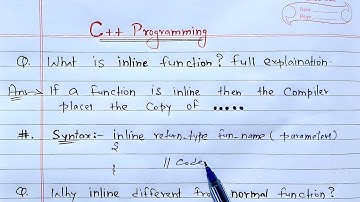 Date
Page
C++ Programming
Q. What is inline function? full explaination.
Ans → If a function is inline then the Compiler
places the Copy of .....
#. Syntax:- inline return_type fun_name ( parameters)
{
// Code
}
Q. Why inline different from normal function?